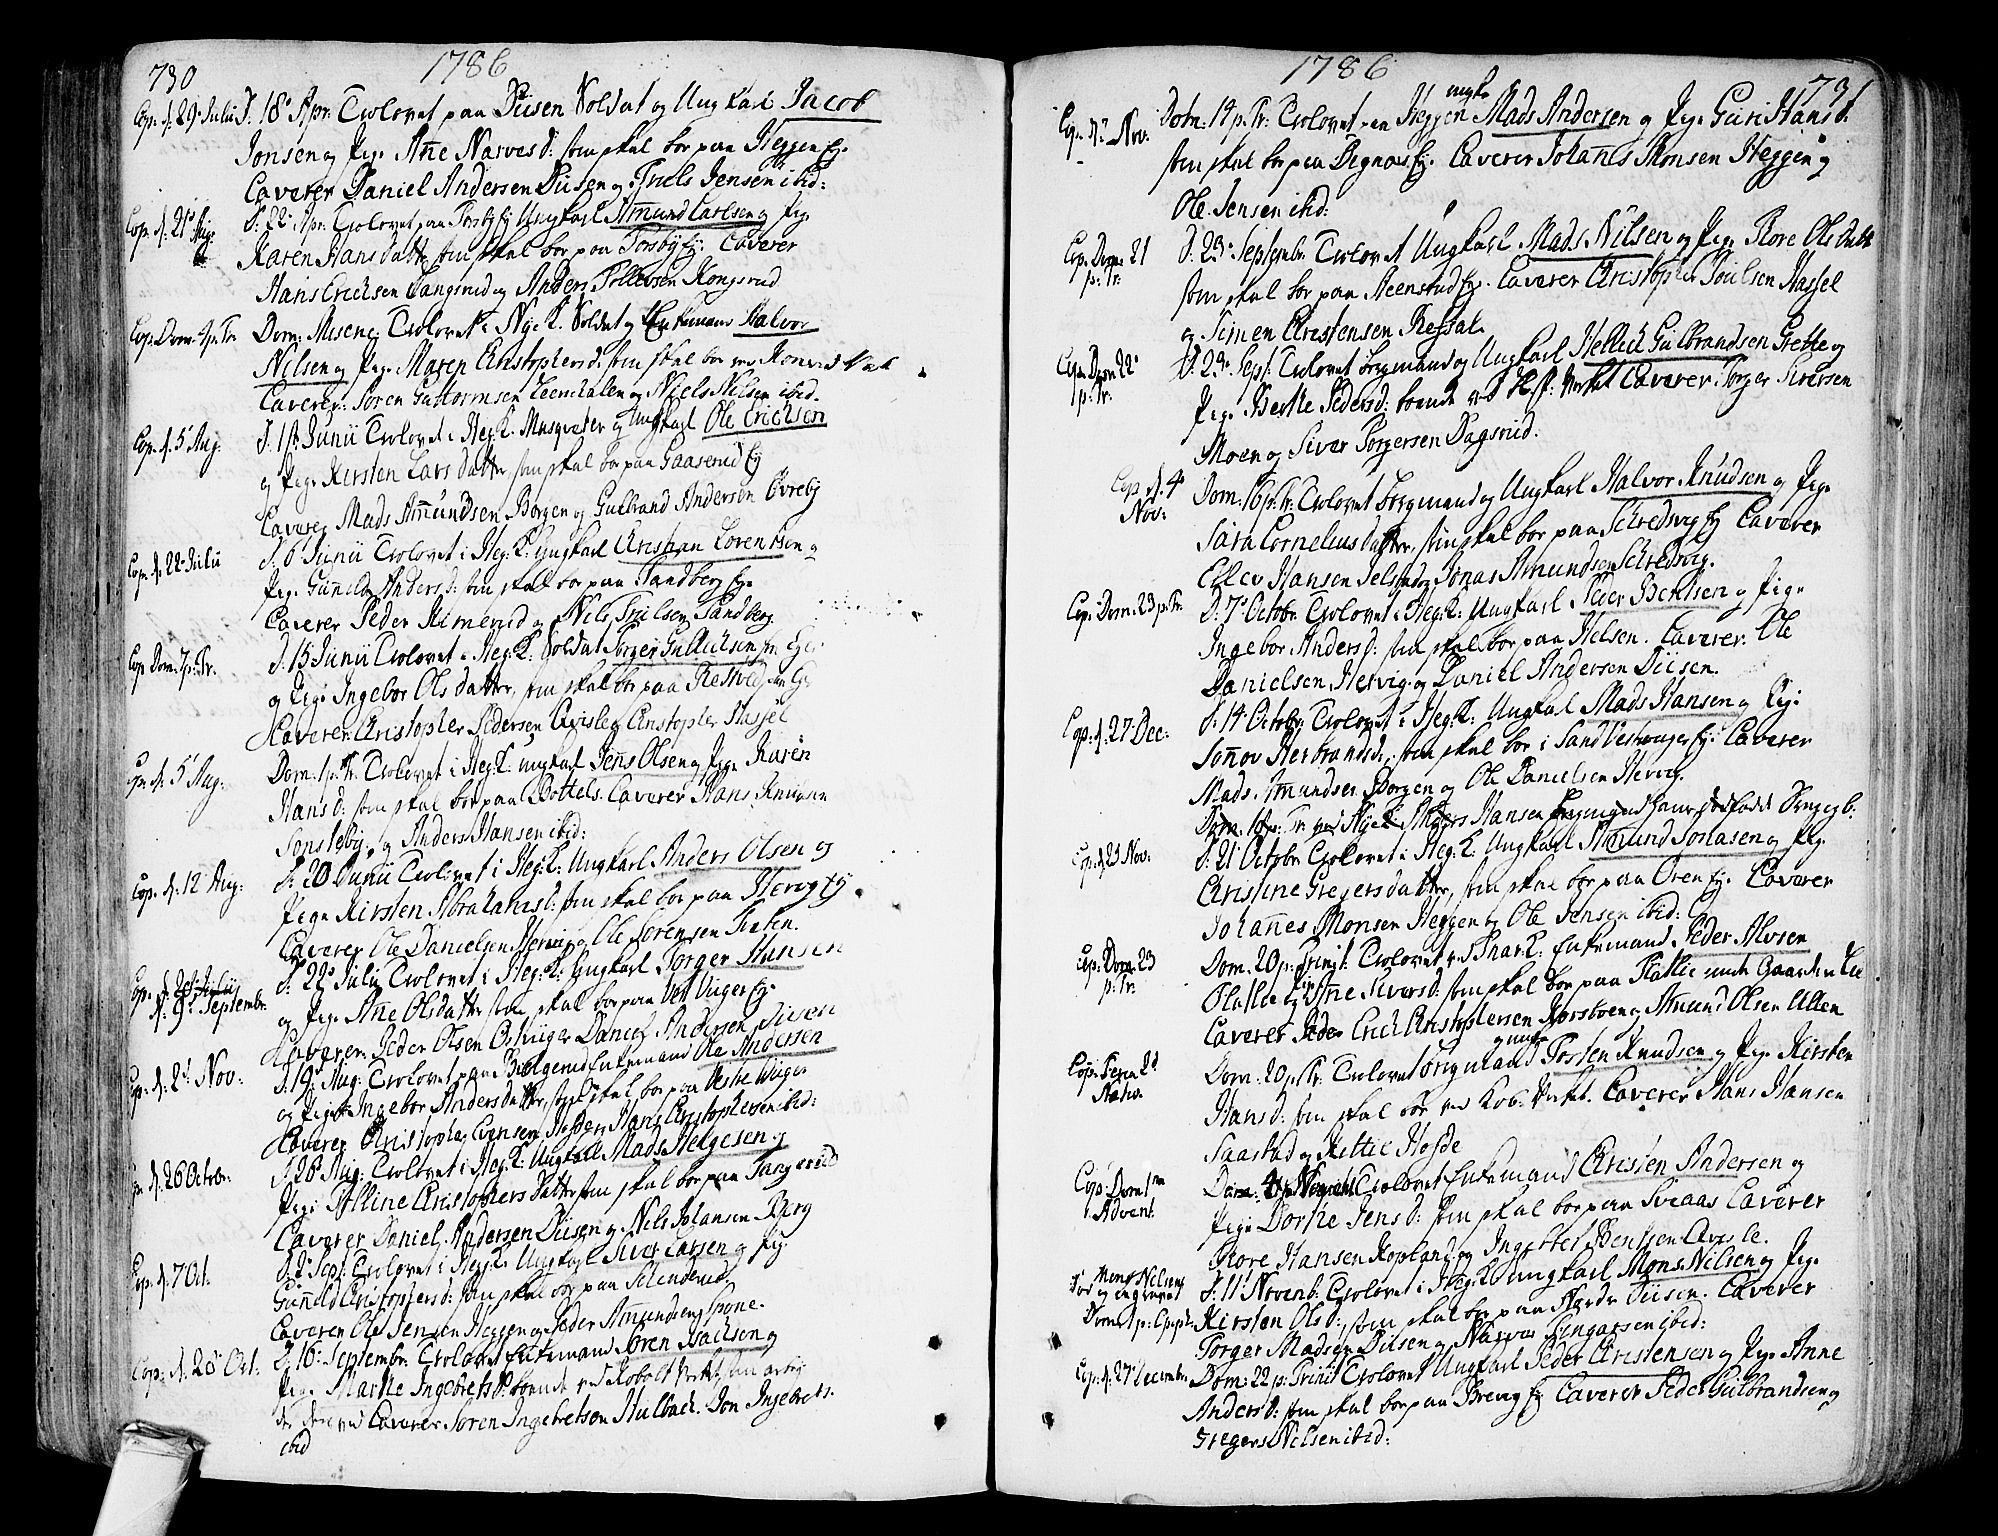 730
1786
Cop. d. 29 Julii
D. 18 Apr. Trolovet paa Diisen Soldat og Ungkarl Jacob
Jonsen og Pige Anne Narves d: som skal boe paa Heggen Ejg.
Caverer Daniel Andersen Diisen og Truls Jensen ibid:
Cop. d. 21 Aug.
D. 22 Apr. Trolovet paa Torsby Ejg Ungkarl Amund Carlsen og Pige
Karen Hansdatter som skal boe paa Torsby Ejg. Caverer
Hans Erichsen Langsrud og Anders Tollefsen Kongsrud
Cop: Dom. 4 p. Tr.
Dom: Miseric. Trolovet i Nyek. Soldat og Enkemand Halvor
Nilsen og Pige Maren Christophers d: som skal boe ved
Caverer: Søren Guttormsen Leemdalen og Niels Nilsen ibid.
Cop. d. 5 Aug.
D. 1 Junii Trolovet i Heg.K. Musqueter og Ungkarl Ole Erichsen
og Pige Kirsten Lars datter, som skal boe paa Gaaserud Ejg
Caverer Mads Amundsen Borgen og Gulbrand Andersen Øvreby
Cop. d. 22 Julii
D. 6 Junii Trolovet i Heg:K: Ungkarl Christian Lorentsen og
Pige Gunnild Anders d: som skal boe paa Sandberg Ejg.
Caverer Peder Simerud og Nils Truelsen Sandberg.
Cop Dom. 7 p. Tr.
D. 15 Junii Trolovet i Heg:K: Soldat Torger Gullichsen fra Eger
og Pige Ingebor Ols datter, som skal boe paa
Caverer: Christopher Pedersen Aavisle, Christopher Hassel
Cop. d. 5 Aug:
Dom. 1 p. Tr. Trolovet i Heg:K: ungkarl Jens Olsen og Pige Karen
Hans d: som skal boe paa Bottels. Caverer Hans Knudsen
Sensteby, og Anders Hansen ibid:
Cop. d. 12 Aug:
D: 20 Junii Trolovet i Heg:K: Ungkarl Anders Olsen og
Pige Kirsten Abrahams d: som skal boe paa Hervig Ejg.
Caverer Ole Danielsen Hervig og Ole Sørensen
Cop. d. 9 Septembr.
D. 22 Julii Trolovet i Heg:K: Ungkarl Torger Hansen
og Pige Anne Olsdatter som skal boe paa Vest Viiger Ejg.
Caverer: Peder Olsen Ostviiger Daniel Andersen Diisen
Cop. d. 2 Nov:
D. 19 Aug: Trolovet paa Enkemand Ole Andersen
og Pige Ingebor Anders datter, som skal boe paa Vestre Wiiger
Caverer Christopher Evensen Hans Christophersen ibid:
Cop. d. 26 Octobr.
D. 26 Aug: Trolovet i Heg:K: Ungkarl Mads Helgesen og
Pige: Christophers Datter som skal boe paa Tangerud
Caverer Daniel Andersen Diisen og Nils Johansen Berg
Cop. d. 7 Oct.
D. 2 Sept. Trolovet i Heg:K Ungkarl Siver Larsen og Pige
Gunnild Christophers d: som skal boe paa Schinderud
Caverer Ole Jensen Heggen og Peder Amundsen Spone.
Cop: d. 20 Oct.
D. 16 Septembr. Trolovet Enkemand Søren Isachsen og
Pige Marthe Ingebrets d: boende ved Kobolt Verket
Caverer Søren Ingebretsen Hulbach. Jon Ingebrets.
ibid
1786
731
Cop. d. 7 Nov.
Dom. 14 p. Tr: Trolovet paa Heggen ungk. Mads Andersen og Pige Guri Hans d:
som skal boe paa Degnæs Ejg. Caverer Johannes Monsen Heggen og
Ole Jensen ibid:
Cop. Dom. 21 p. Tr.
D: 23 Septembr. Trolovet Ungkarl Mads Nilsen og Pige Kore Ols Datt:
som skal boe paa Steenstad Ejg. Caverer Christopher Poulsen Hassel
og Simen Christensen
Cop. Dom. 22 p. Tr.
D: 23 Sept. Trolovet Bergmand og Ungkarl Hellich Gulbrandsen Grette og
Pige Berthe Peders d: boende ved Verket Caverer: Torger Siversen
Moen og Siver Torgersen Dagsrud.
Cop. d. 4 Nov:
Dom. 16 p. Tr. Trolovet Bergmand og Ungkarl Halvor Knudsen og Pige
Sara Cornelius datter, som skal boe paa Schredsvig Ejg Caverer
Ellev Hansen Jelstad og Jonas Amundsen Schredsvig.
Cop. Dom. 23 p. Tr.
D. 7 Octobr. Trolovet i Heg:K: Ungkarl Peder Bentsen og Pige
Ingebor Anders d: som skal boe paa Helsen. Caverer: Ole
Danielsen, Hervig. og Daniel Andersen Diisen.
Cop. d. 27 Dec:
D. 14 Octobr: Trolovet i Heg:K: Ungkarl Mads Hansen og Pige
Sønov Herbrands d., som skal boe i Sandbeshenger Ejg. Caverer
Mads Amundsen Borgen og Ole Danielsen Hervig.
Cop. d. 23 Nov:
D. 21 Octobr. Trolovet i Heg.K. Ungkarl Amund Jonasen og Pige
Christine Gregers datter, som skal boe paa Oren Ejg. Caverer
Johannes Monsen Heggen og Ole Jensen ibid:
Cop: Dom. 23 p. Tr.
Dom. 20 p. Trinit. Trolovet ved SnarK. Enkemand Peder Alvsen
og Pige Anne Sivers d: som skal boe paa under Gaarden Lie
Caverer Erich Christophersen Korsboen og Amund Olsen Ullen
Cop: Feria 2d Nativ.
Dom: 20 p. Tr. Trolovet Bergmand og ungk. Torsten Knudsen og Pige Kirsten
Hans d: som skal boe ved Kob: Verket. Caverer Hans Hansen
Saastad og Kittil Hofde
Cop: Dom 1 Advent.
Trolovet Enkemand Christen Andersen og
Pige Dorthe Jens d: som skal boe paa Sveaas Caverer
Thore Hansen Kopland og Ingebret Bentsen Avisle.
Mons Nilsens
D. 11 Novemb: Trolovet i Heg.K. Ungkarl Mons Nilsen og Pige
Kirsten Ols d:, som skal boe paa Nordre Diisen. Caverer
Torger Madsen Diisen og Narves ibid:
Cop. d. 27 Decembr.
Dom: 22 p. Trinit Trolovet Ungkarl Peder Christensen og Pige Anne
Anders d: som skal boe paa Brevig Ejg Caverer Peder Gulbrandsen og
Gregers Nilsen ibid: